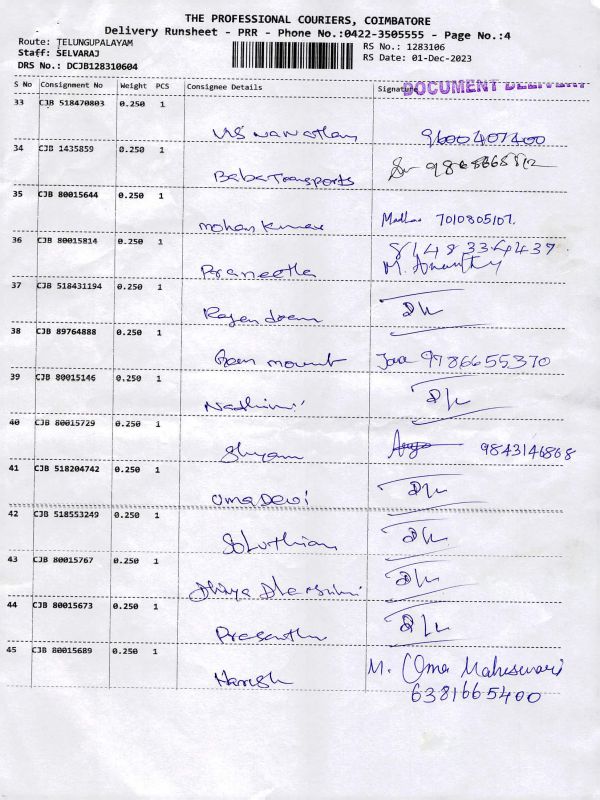 THE PROFESSIONAL COURIERS, COIMBATORE
Delivery Runsheet - PRR - Phone No.:0422-3505555 - Page No.:4
Route: TELUNGUPALAYAM
Staff: SELVARAJ
DRS No.: DCJB128310604
RS No.: 1283106
RS Date: 01-Dec-2023
S No Consignment No Weight PCS Consignee Details Signature
DOCUMENT DELIVERY
33 CJB 518470803 0.250 1 9600407400
34 CJB 1435859 0.250 1 Baba Transports
35 CJB 80015644 0.250 1 mohan Kumar 7010805107.
36 CJB 80015814 0.250 1 Praneetha 8148334437
M. Ananthy
37 CJB 518431194 0.250 1 D/L
38 CJB 89764888 0.250 1 mount 9786655370
39 CJB 80015146 0.250 1 Nadhini D/L
40 CJB 80015729 0.250 1 Shyam 9843146868
41 CJB 518204742 0.250 1 Uma Devi D/L
42 CJB 518553249 0.250 1 D/L
43 CJB 80015767 0.250 1 Dhiya Dharshini D/L
44 CJB 80015673 0.250 1 Prasanth D/L
45 CJB 80015689 0.250 1 Harish M. Uma Maheswari
6381665400